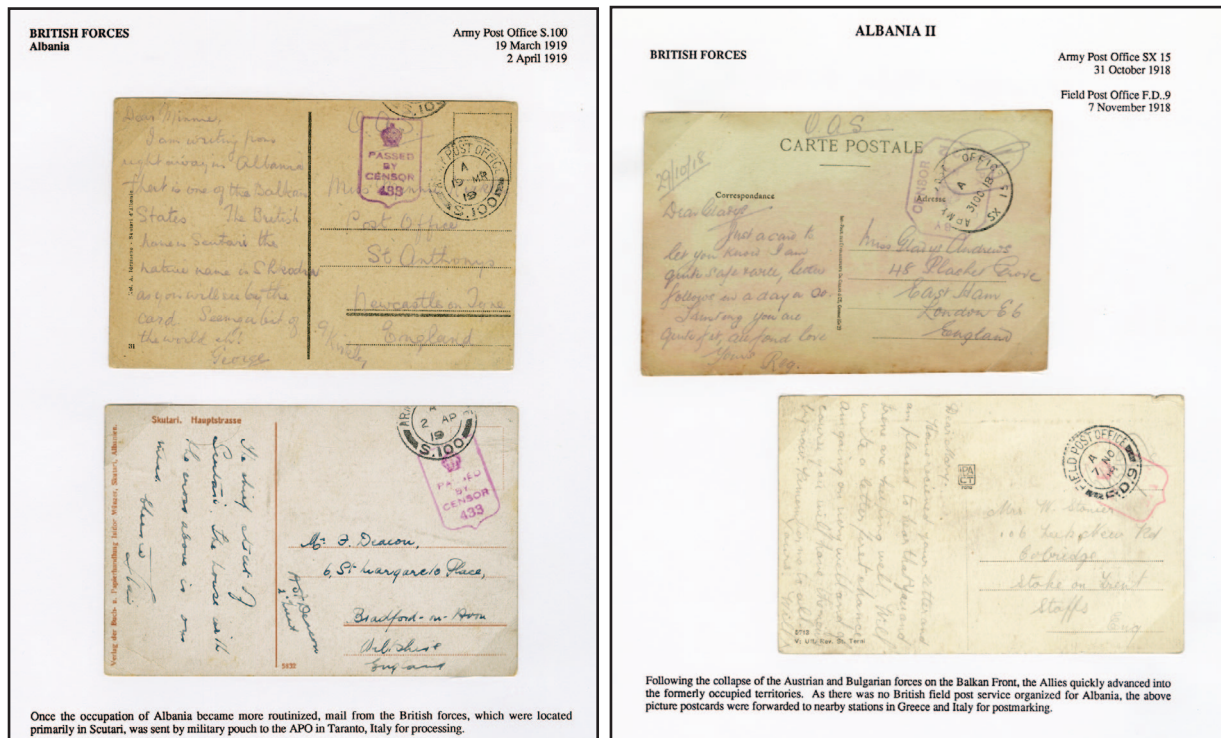 BRITISH FORCES
Albania
Army Post Office S.100
19 March 1919
2 April 1919
Dear Minnie,
I am writing from
right away in Albania
That is one of the Balkan
States. The British
name is Scutari the
native name is
as you will see by the
card. Some a bit of
the world eh?
George
31
O A S
PASSED
BY
CENSOR
433
ARMY POST OFFICE
A
19 MR
19
S.100
Miss
Post Office
St Anthonys
Newcastle on Tyne
England
Skutari. Hauptstrasse
Verlag der Buch- u. Papierhandlung
Skutari, Albanien.
The chief street of
Scutari. The house with
the cross above is our
mess
2 AP
19
S.100
PASSED
BY
CENSOR
433
Mr F. Deacon,
6, St Margarets Place,
Bradford-on-Avon
Wiltshire
England
Deacon
Lieut
Once the occupation of Albania became more routinized, mail from the British forces, which were located
primarily in Scutari, was sent by military pouch to the APO in Taranto, Italy for processing.
ALBANIA II
BRITISH FORCES
Army Post Office SX 15
31 October 1918
Field Post Office F.D..9
7 November 1918
O A S
CARTE POSTALE
29/10/18
Correspondance
Adresse
Dear Gladys
Just a card to
let you know I am
quite safe & well, letter
follows in a day or so.
Trusting you are
quite fit, all fond love
Yours Reg.
CENSOR
BY
ARMY POST OFFICE SX 15
A
31 OC 18
Miss Gladys Andrews
48 Plashet Grove
East Ham
London E6
England
FIELD POST OFFICE
A
7 NO
F.D.9
Dear
Have received your letter and
am pleased to hear that you and
are keeping well. Will
write a letter first chance.
Am going on very well and
Mrs W.
106
Cobridge
Stoke on Trent
Staffs
Eng
Following the collapse of the Austrian and Bulgarian forces on the Balkan Front, the Allies quickly advanced into
the formerly occupied territories. As there was no British field post service organized for Albania, the above
picture postcards were forwarded to nearby stations in Greece and Italy for postmarking.